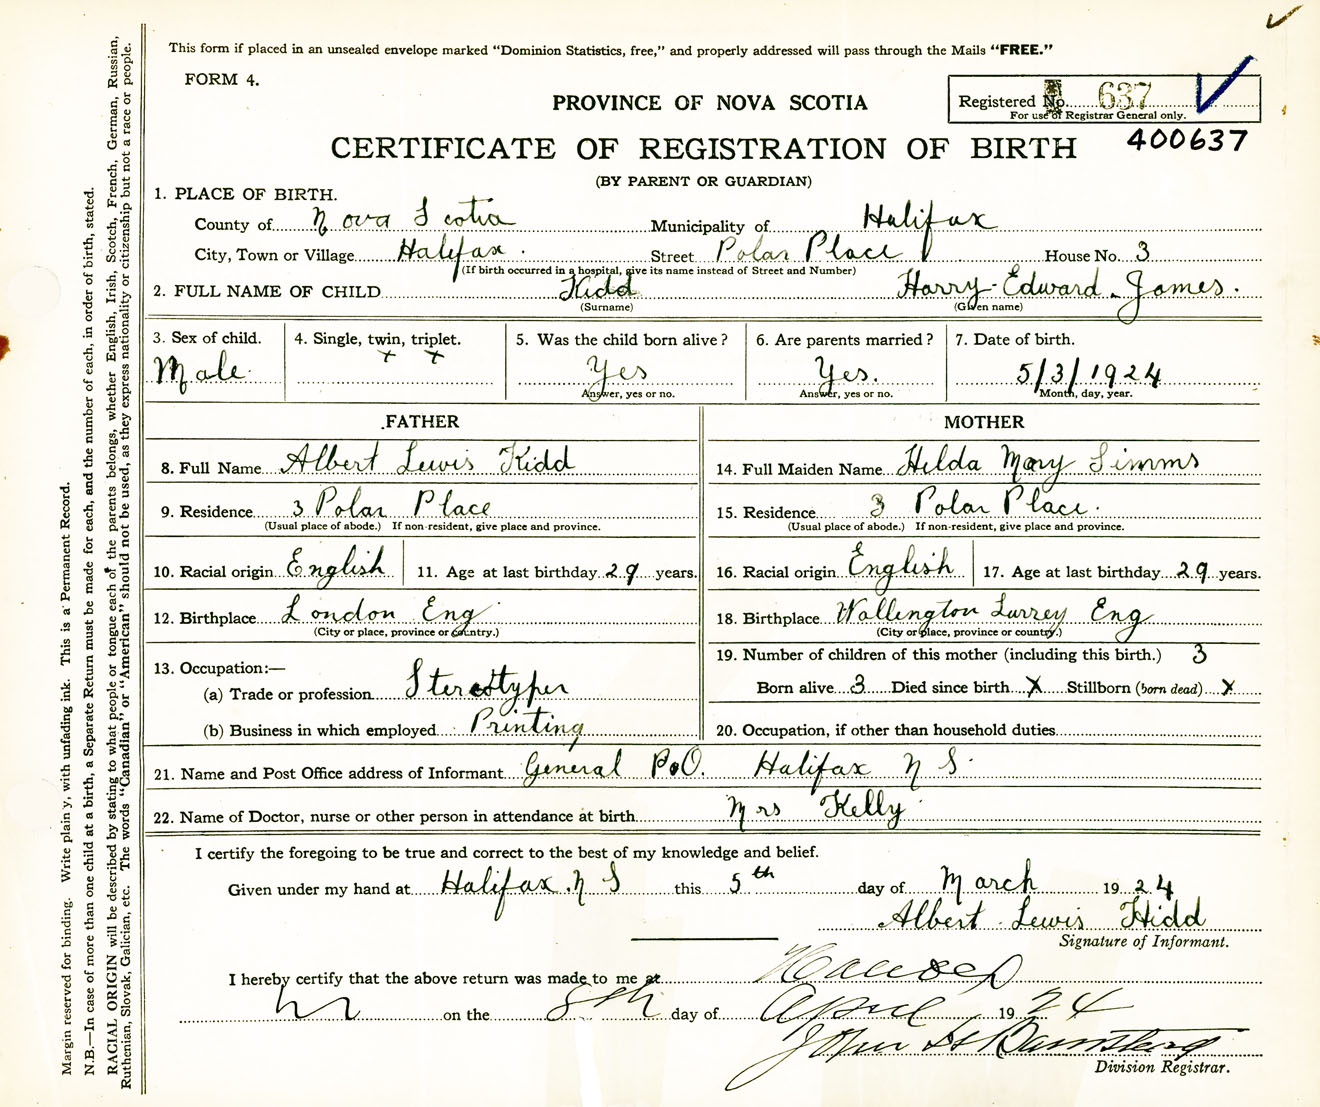 This form if placed in an unsealed envelope marked "Dominion Statistics, free," and properly addressed will pass through the Mails "FREE."
FORM 4.
PROVINCE OF NOVA SCOTIA
Registered No. 637
For use of Registrar General only.
400637
CERTIFICATE OF REGISTRATION OF BIRTH
(BY PARENT OR GUARDIAN)
1. PLACE OF BIRTH.
County of Nova Scotia Municipality of Halifax
City, Town or Village Halifax. Street Polar Place House No. 3
(If birth occurred in a hospital, give its name instead of Street and Number)
2. FULL NAME OF CHILD Kidd Harry Edward James.
(Surname) (Given name)
3. Sex of child. 4. Single, twin, triplet. 5. Was the child born alive? 6. Are parents married? 7. Date of birth.
Male x x Yes Yes. 5/3/1924
Answer, yes or no. Answer, yes or no. Month, day, year.
FATHER MOTHER
8. Full Name Albert Lewis Kidd 14. Full Maiden Name Hilda Mary Simms
9. Residence 3 Polar Place 15. Residence 3 Polar Place.
(Usual place of abode.) If non-resident, give place and province. (Usual place of abode.) If non-resident, give place and province.
10. Racial origin English 11. Age at last birthday 29 years. 16. Racial origin English 17. Age at last birthday 29 years.
12. Birthplace London Eng 18. Birthplace Wallington Surrey Eng
(City or place, province or country.) (City or place, province or country.)
13. Occupation:— 19. Number of children of this mother (including this birth.) 3
(a) Trade or profession Stereotyper Born alive 3 Died since birth X Stillborn (born dead) X
(b) Business in which employed Printing 20. Occupation, if other than household duties
21. Name and Post Office address of Informant General P.O. Halifax N S.
22. Name of Doctor, nurse or other person in attendance at birth Mrs Kelly
I certify the foregoing to be true and correct to the best of my knowledge and belief.
Given under my hand at Halifax. N S this 5th day of March 1924
Albert Lewis Kidd
Signature of Informant.
I hereby certify that the above return was made to me at
on the 8th day of April 1924
John
Division Registrar.
Margin reserved for binding. Write plainly, with unfading ink. This is a Permanent Record.
N.B.—In case of more than one child at a birth, a Separate Return must be made for each, and the number of each, in order of birth, stated.
RACIAL ORIGIN will be described by stating to what people or tongue each of the parents belongs, whether English, Irish, Scotch, French, German, Russian,
Ruthenian, Slovak, Galician, etc. The words "Canadian" or "American" should not be used, as they express nationality or citizenship but not a race or people.